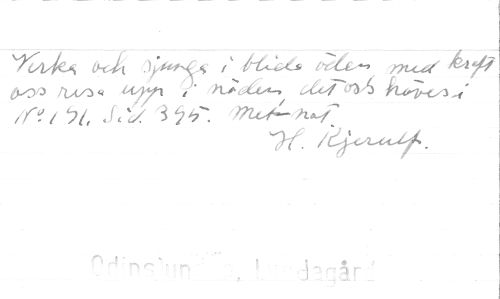 Verka och sjunga i blida öden med kraft
oss resa upp i nöden, det oss höves i
No 191. Sid. 395. Met not.
H. Kjerulf.
Odinslun a, Lundagård